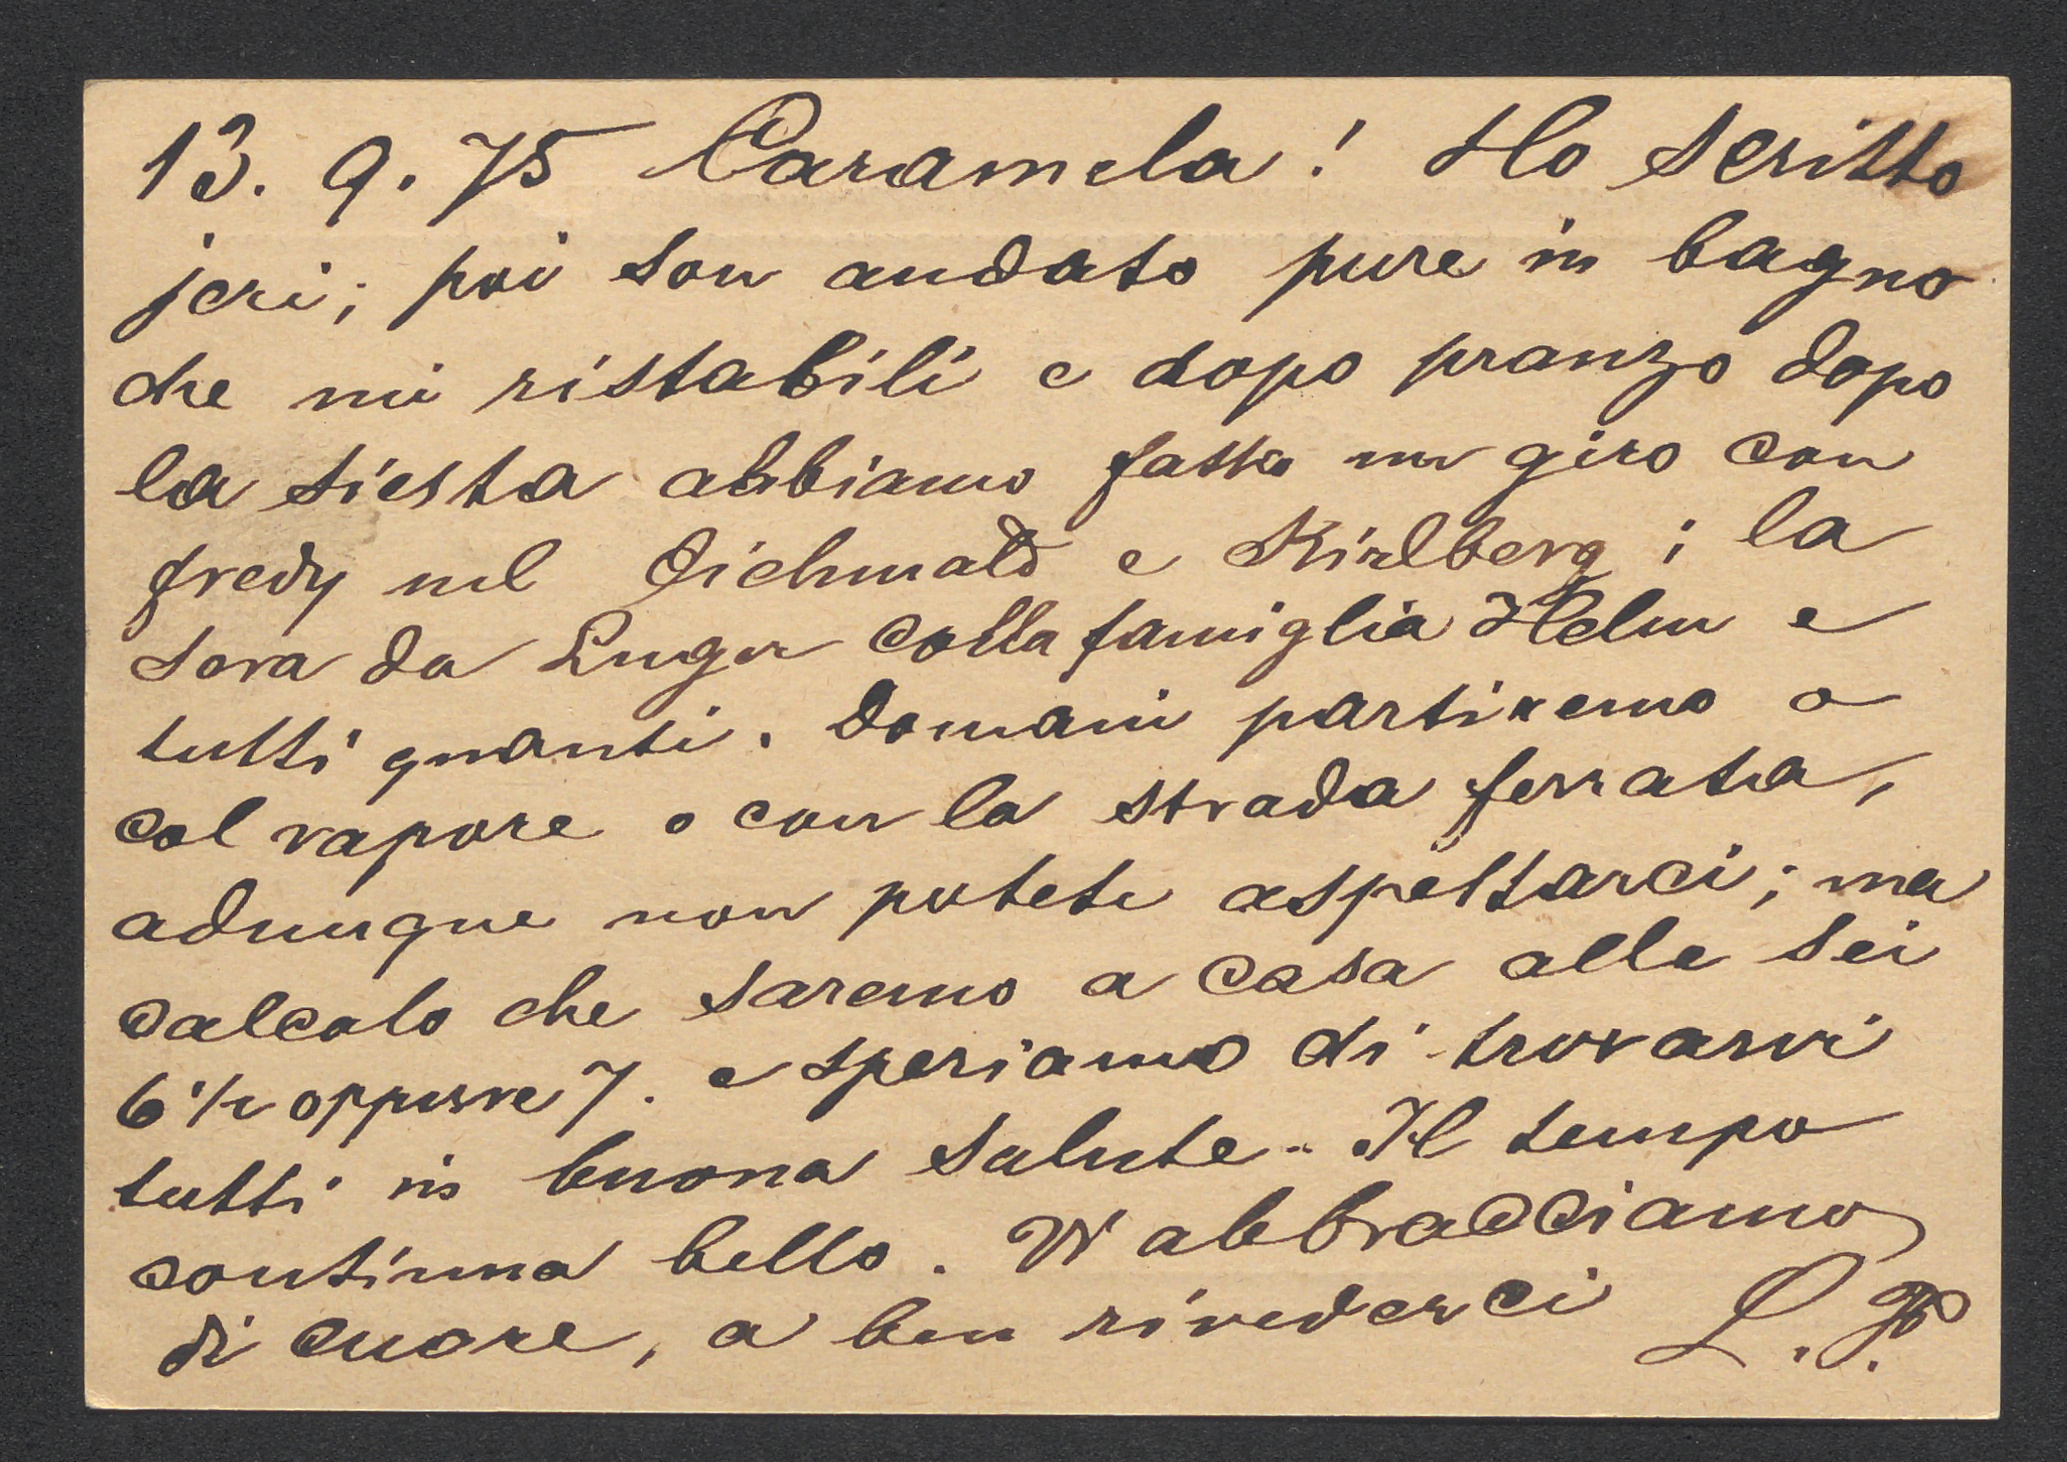 13. 9. 75 Caramela! Ho scritto
jeri; poi son andato pure in bagno
che mi ristabili e dopo pranzo dopo
la siesta abbiamo fatto un giro con
fredy nel Eichwald e Kirlberg; la
sera da Luger colla famiglia Helm e
tutti quanti. Domani partiremo o
col vapore o con la strada ferrata,
adunque non potete aspettarci; ma
calcolo che saremo a casa alle sei
6 1/2 oppure 7. e speriamo di trovarvi
tutti in buona salute. Il tempo
continua bello. Vi abbracciamo
di cuore, a ben rivederci L. P.